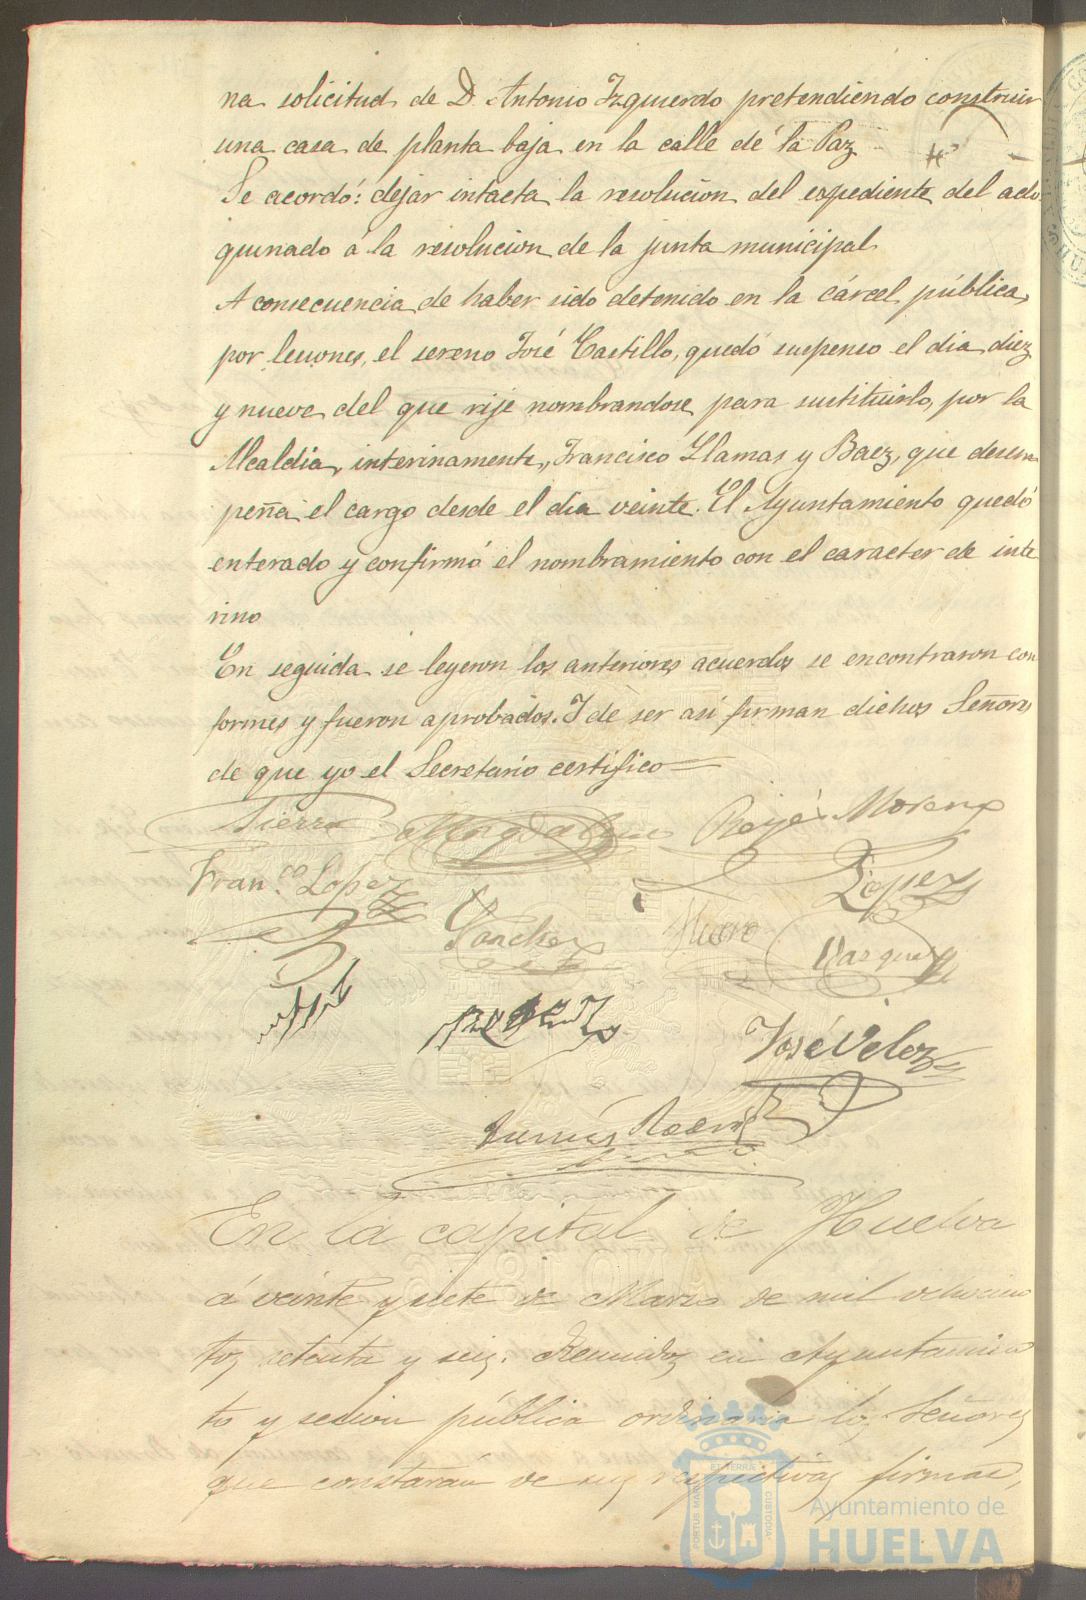 na solicitud de D. Antonio Izquierdo pretendiendo construir
una casa de planta baja en la calle de la Paz
Se acordó: dejar intacta la resolucion del espediente del ado
quinado á la resolucion de la junta municipal
A consecuencia de haber sido detenido en la cárcel pública,
por lesiones, el sereno José Castillo, quedó suspenso el dia diez
y nueve del que rije nombrandose para sustituirlo, por la
Alcaldia, interinamente, Francisco Llamas y Baez, que desem
peña el cargo desde el dia veinte. El Ayuntamiento quedó
enterado y confirmó el nombramiento con el caracter de inte
rino
En seguida se leyeron los anteriores acuerdos se encontraron con
formes y fueron aprobados. I de ser asi firman dichos Señores
de que yo el Secretario certifico
Sierra Magdaleno Rejes Moreno
Fran.co Lopez Lopez
Sanchez Nuevo Vazquez
José Velez
En la capital de Huelva
á veinte y siete de Marzo de mil ochocien
tos setenta y seis. Reunidos en Ayuntamien
to y sesion pública ordinaria los Señores
que constarán de sus respectivas firmas,
AÑO 1876
PORTUS MARIS ET TERRÆ CUSTODIA
Ayuntamiento de
HUELVA